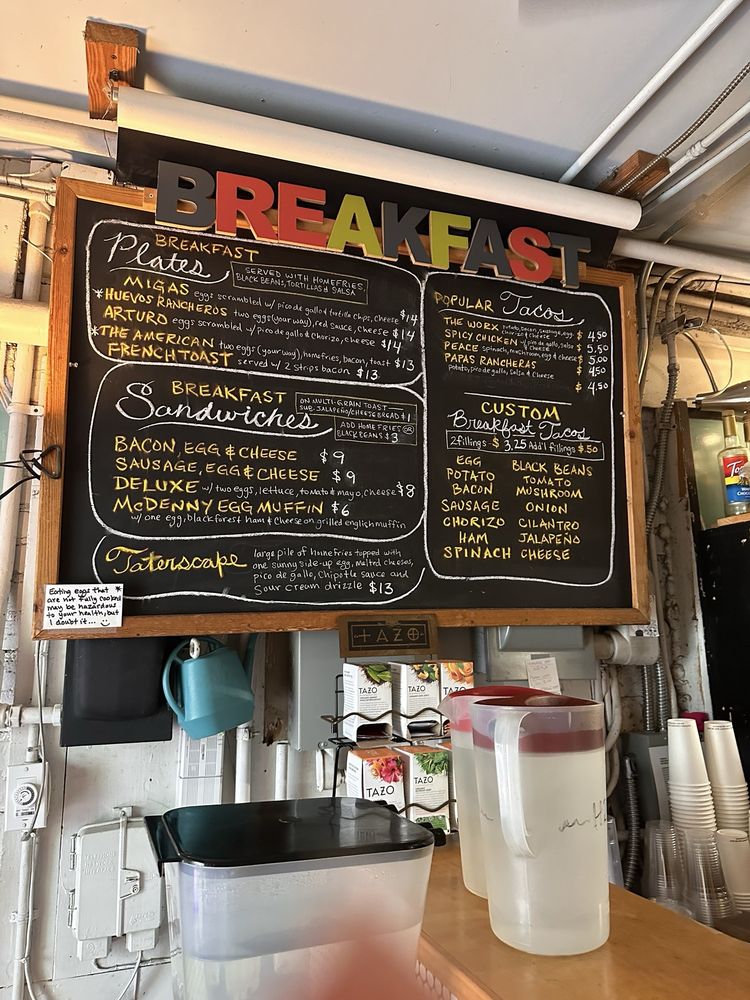 BREAKFAST
BREAKFAST
Plates
SERVED WITH HOMEFRIES,
BLACK BEANS, TORTILLAS & SALSA
MIGAS eggs scrambled w/ pico de gallo & tortilla chips, cheese $14
*HUEVOS RANCHEROS two eggs (your way), red sauce, cheese $14
ARTURO eggs scrambled w/ pico de gallo & chorizo, cheese $14
*THE AMERICAN two eggs (your way), homefries, bacon, toast $13
FRENCH TOAST served w/ 2 strips bacon $13
BREAKFAST
Sandwiches
ON MULTI-GRAIN TOAST
SUB. JALAPEÑO/CHEESE BREAD $1
ADD HOMEFRIES OR
BLACK BEANS $3
BACON, EGG & CHEESE $9
SAUSAGE, EGG & CHEESE $9
DELUXE w/ two eggs, lettuce, tomato & mayo, cheese $8
McDENNY EGG MUFFIN $6
w/ one egg, black forest ham & cheese on grilled english muffin
Taterscape
large pile of homefries topped with
one sunny side-up egg, melted cheeses,
pico de gallo, chipotle sauce and
sour cream drizzle $13
POPULAR Tacos
THE WORX potato, bacon, sausage, egg $4.50
chorizo & cheese
SPICY CHICKEN w/ pico de gallo, salsa $5.50
& cheese
PEACE spinach, mushroom, egg & cheese $5.00
PAPAS RANCHERAS $4.50
potato, pico de gallo, salsa & cheese
$4.50
CUSTOM
Breakfast Tacos
2 fillings - $3.25 Add'l fillings $.50
EGG
POTATO
BACON
SAUSAGE
CHORIZO
HAM
SPINACH
BLACK BEANS
TOMATO
MUSHROOM
ONION
CILANTRO
JALAPEÑO
CHEESE
Eating eggs that *
are not fully cooked
may be hazardous
to your health, but
I doubt it...
TAZO
TAZO
TAZO
TAZO
TAZO